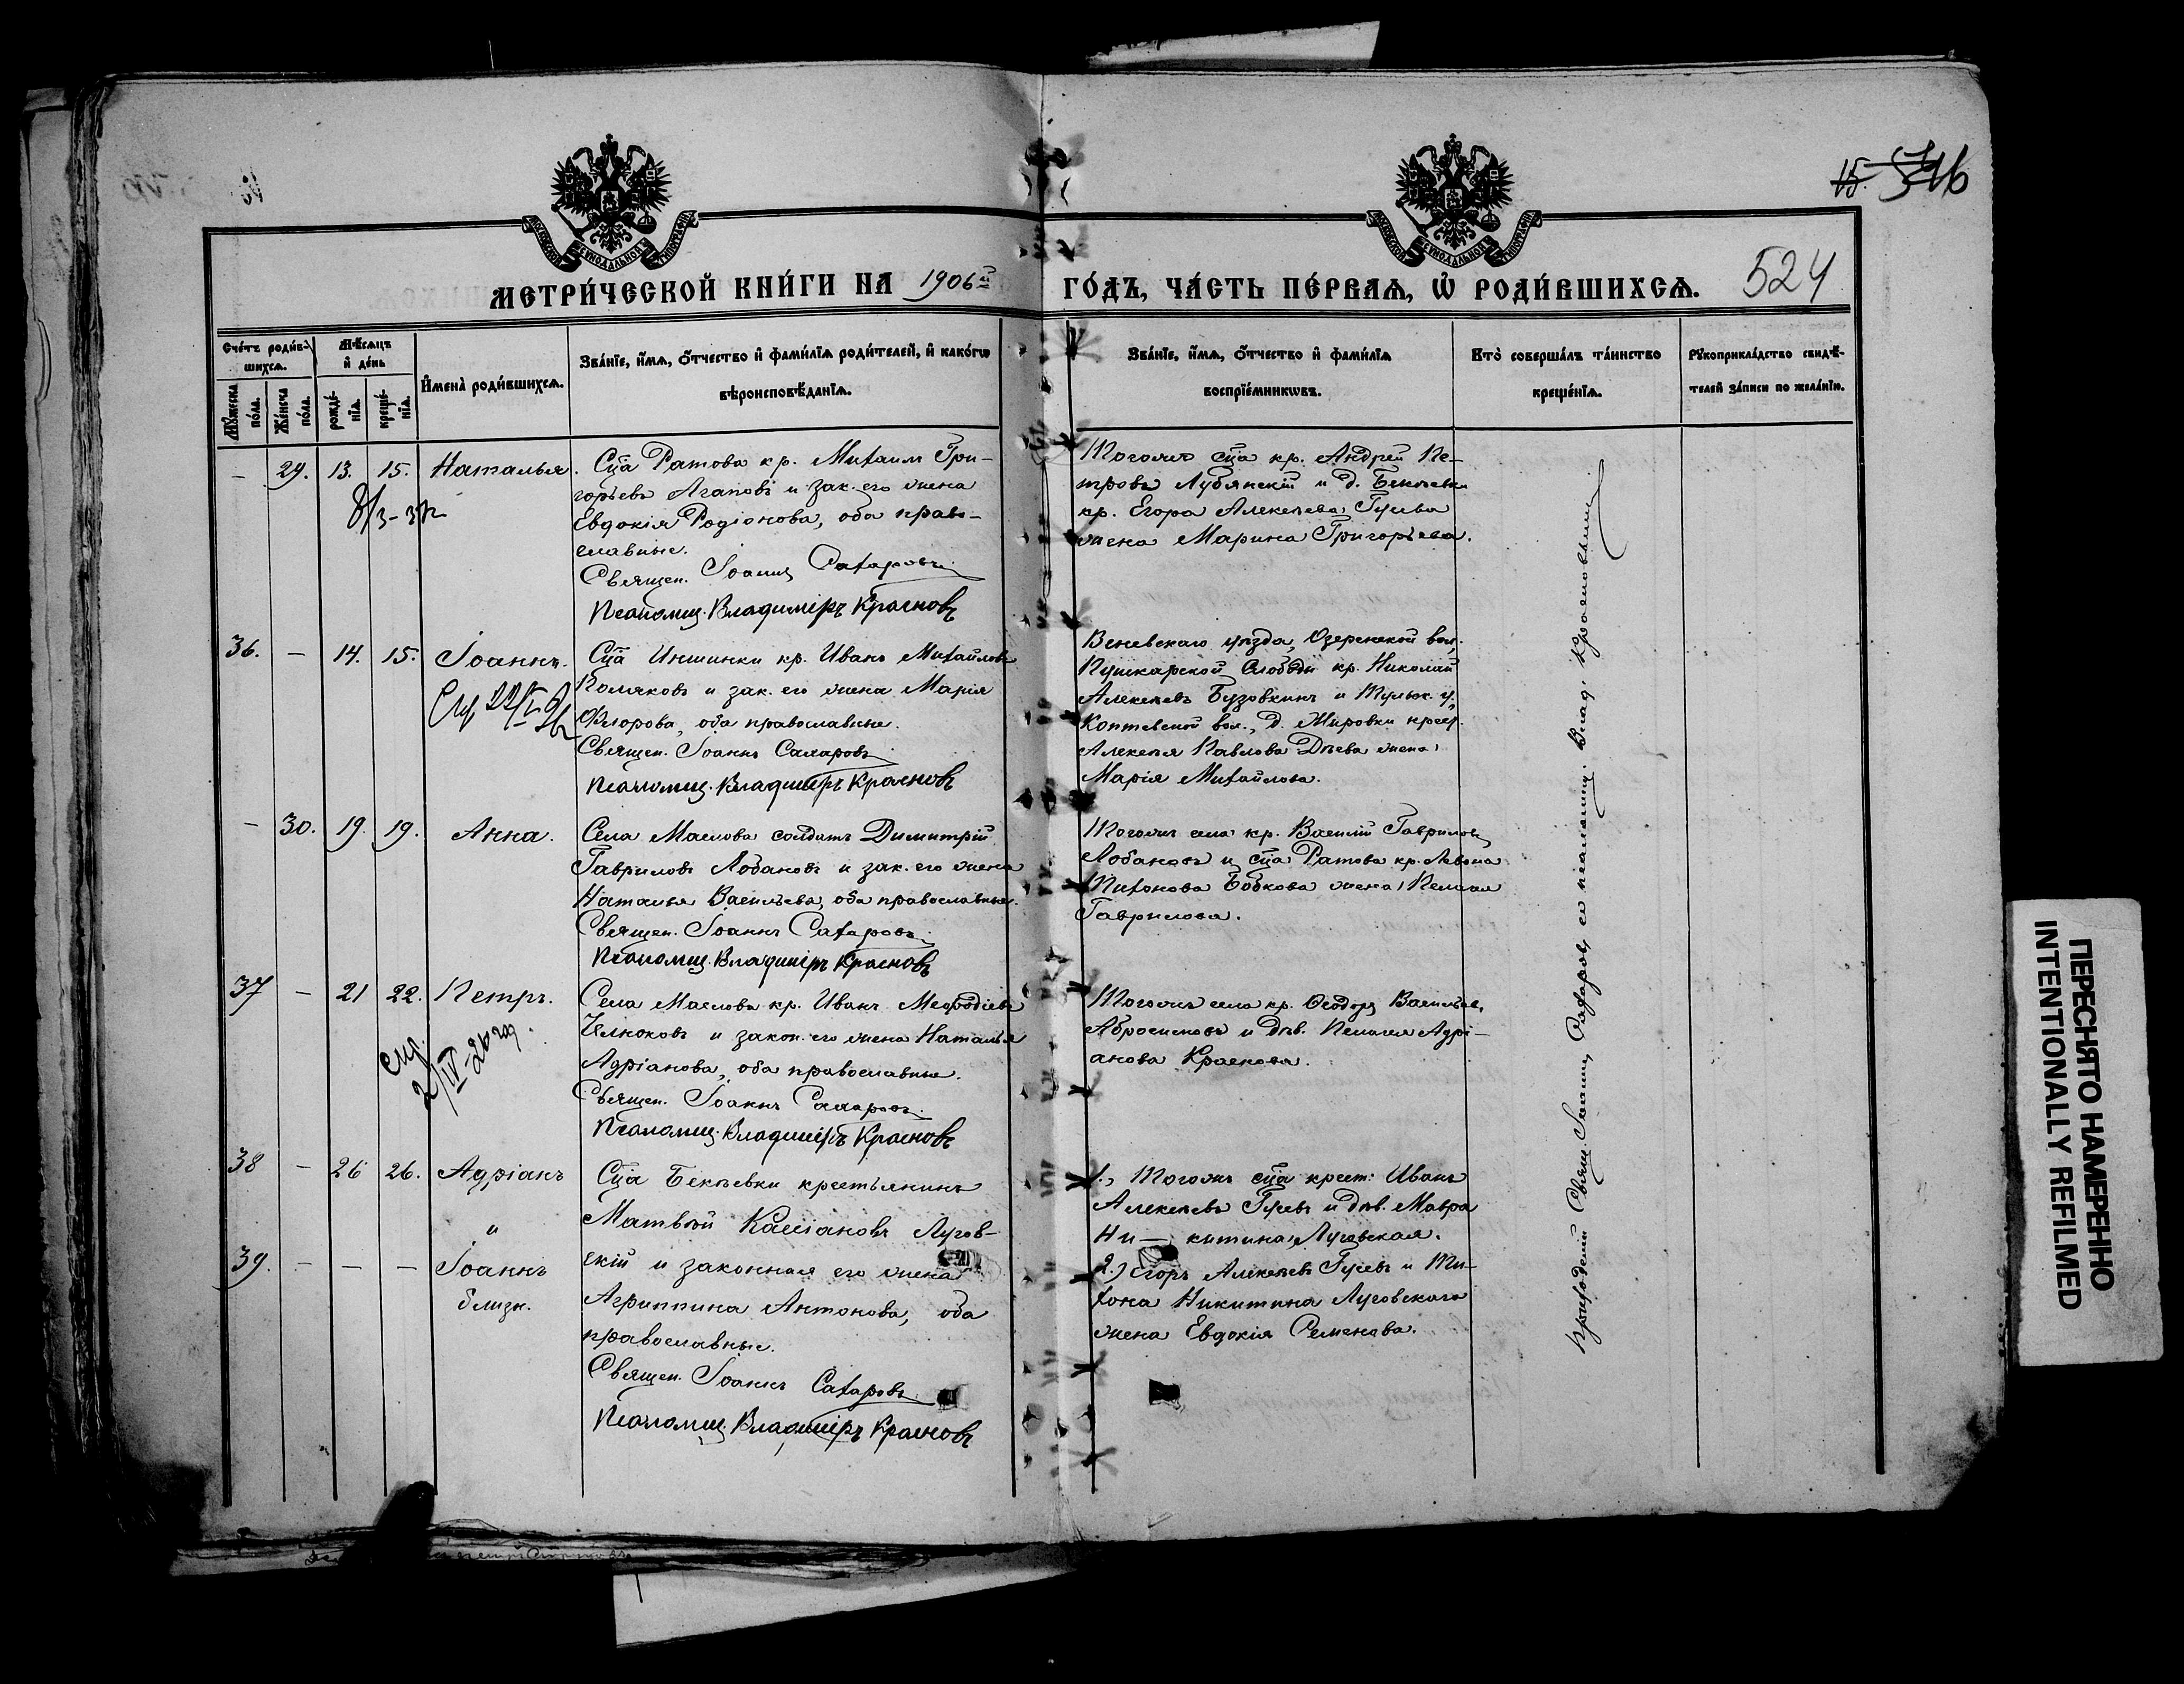 15. 
524
МЕТРИ́ЧЕСКОЙ КНИ́ГИ НА 1906й ГО́ДЪ, ЧА́СТЬ ПЕ́РВАѦ, Ѡ҆ РОДИ́ВШИХСѦ.
Сче́тъ роди́вшихсѧ.
Мꙋ́жеска по́ла.
Же́нска по́ла.
Мѣ́сяцъ и҆ де́нь
рожде́нїѧ.
креще́нїѧ.
И҆мена̀ роди́вшихсѧ.
Зва́нїе, и҆́мѧ, ѻ҆́тчество и҆ фами́лїѧ роди́телей, и҆ како́гѡ
вѣроисповѣ́данїѧ.
Зва́нїе, и҆́мѧ, ѻ҆́тчество и҆ фами́лїѧ
воспрїе́мникѡвъ.
Кто̀ соверша́лъ та́инство
креще́нїѧ.
Рꙋкоприкла́дство свидѣ́-
телей за́писи по жела́нїю.
– 29. 13. 15. Наталья.
Сца Ратова кр. Михаилъ Гри-
горьевъ Агаповъ и зак. его жена
Евдокія Родіонова, оба право-
славные.
Священ. Іоаннъ Сахаровъ
Псаломщ. Владиміръ Красновъ
Тогожъ сца кр. Андрей Пе-
тровъ Лубянскій и д. Бекѣевки
кр. Егора Алексѣева Гусева
жена Марина Григорьева.
36. – 14. 15. Іоаннъ.
Сца Иншинки кр. Иванъ Михайловъ
Поляковъ и зак. его жена Марія
Флорова, оба православные.
Священ. Іоаннъ Сахаровъ
Псаломщ. Владиміръ Красновъ
Веневскаго уѣзда, Озеренской вол.,
Пушкарской Слободы кр. Николай
Алексѣевъ Бузовкинъ и Тульск. у.,
Коптевской вол., д. Мировки крест.
Алексѣя Павлова Дѣева жена
Марія Михайлова.
– 30. 19. 19. Анна.
Села Маслова солдатъ Димитрій
Гавриловъ Лобановъ и зак. его жена
Наталья Васильева, оба православные.
Священ. Іоаннъ Сахаровъ.
Псаломщ. Владиміръ Красновъ
Тогожъ села кр. Василій Гавриловъ
Лобановъ и сца Ратова кр.
Бобкова жена Пелагея
Гаврилова.
37 – 21 22. Петръ.
Села Маслова кр. Иванъ Меѳодіевъ
Челноковъ и закон. его жена Наталья
Адріанова, оба православные.
Священ. Іоаннъ Сахаровъ.
Псаломщ. Владиміръ Красновъ
Тогожъ села кр. Ѳеодоръ Васильев.
Абросимовъ и дѣв. Пелагея Адрі-
анова Краснова.
38 – 26 26. Адріанъ
и
39. – – – Іоаннъ
близн.
Сца Бекѣевки крестьянинъ
Матвѣй Кассіановъ Лугов-
скій и законная его жена
Агриппина Антонова, оба
православные.
Священ. Іоаннъ Сахаровъ.
Псаломщ. Владиміръ Красновъ
1., Тогожъ сца крест. Иванъ
Алексѣевъ Гусевъ и дѣв. Мавра
Ни– китина Луговская.
2.) Егоръ Алексѣевъ Гусевъ и Ти-
хона Никитина Луговскаго
жена Евдокія Семенова.
Приходскій Свящ. Іоаннъ Сахаровъ съ псаломщ. Влад. Красновымъ
ПЕРЕСНЯТО НАМЕРЕННО
INTENTIONALLY REFILMED